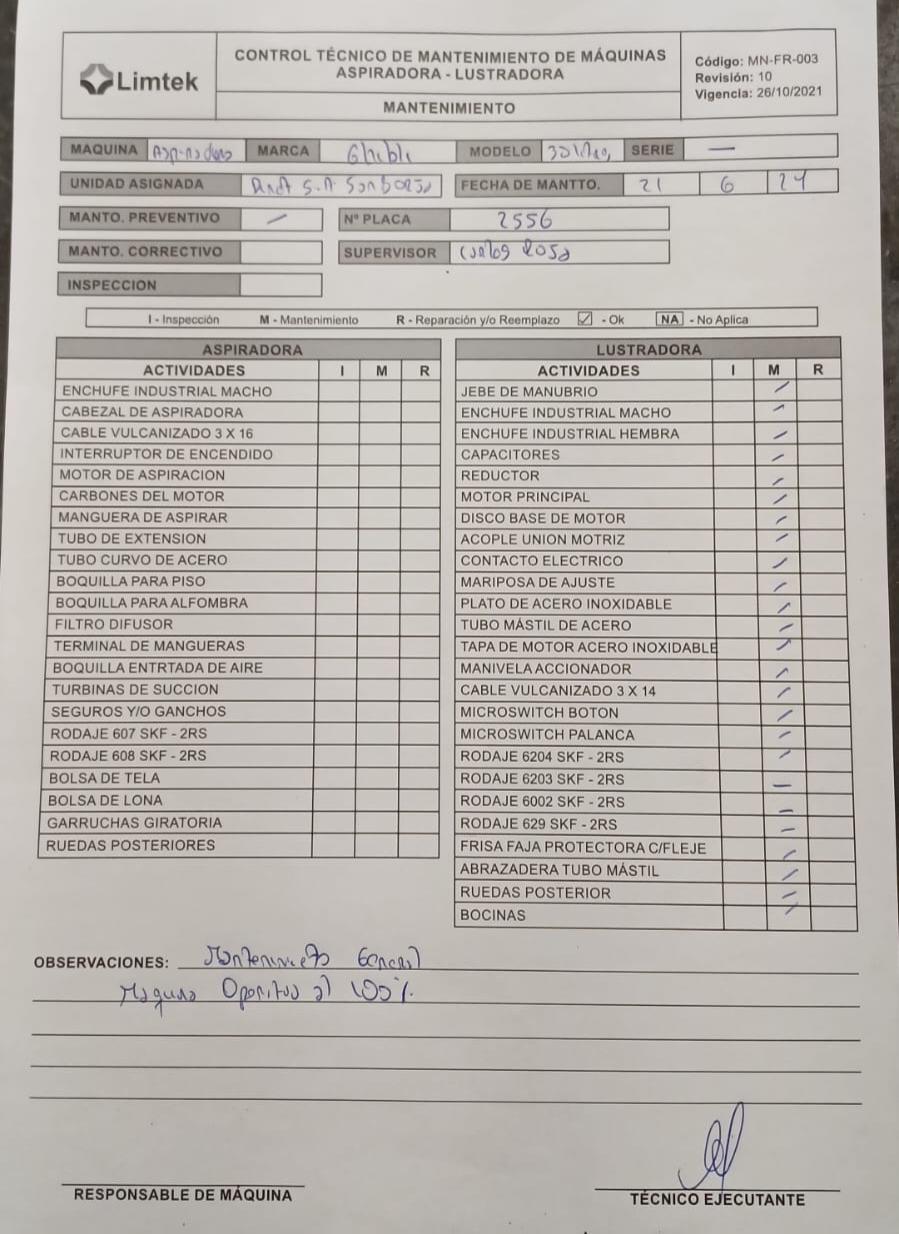 Limtek
CONTROL TÉCNICO DE MANTENIMIENTO DE MÁQUINAS
ASPIRADORA - LUSTRADORA
MANTENIMIENTO
Código: MN-FR-003
Revisión: 10
Vigencia: 26/10/2021
MAQUINA Aspiradora MARCA Ghibli MODELO SERIE —
UNIDAD ASIGNADA S.A FECHA DE MANTTO. 21 6 24
MANTO. PREVENTIVO / Nº PLACA 2556
MANTO. CORRECTIVO SUPERVISOR Carlos Rosa
INSPECCION
I - Inspección M - Mantenimiento R - Reparación y/o Reemplazo ☑ - Ok NA - No Aplica
ASPIRADORA
ACTIVIDADES I M R
ENCHUFE INDUSTRIAL MACHO
CABEZAL DE ASPIRADORA
CABLE VULCANIZADO 3 X 16
INTERRUPTOR DE ENCENDIDO
MOTOR DE ASPIRACION
CARBONES DEL MOTOR
MANGUERA DE ASPIRAR
TUBO DE EXTENSION
TUBO CURVO DE ACERO
BOQUILLA PARA PISO
BOQUILLA PARA ALFOMBRA
FILTRO DIFUSOR
TERMINAL DE MANGUERAS
BOQUILLA ENTRTADA DE AIRE
TURBINAS DE SUCCION
SEGUROS Y/O GANCHOS
RODAJE 607 SKF - 2RS
RODAJE 608 SKF - 2RS
BOLSA DE TELA
BOLSA DE LONA
GARRUCHAS GIRATORIA
RUEDAS POSTERIORES
LUSTRADORA
ACTIVIDADES I M R
JEBE DE MANUBRIO /
ENCHUFE INDUSTRIAL MACHO /
ENCHUFE INDUSTRIAL HEMBRA /
CAPACITORES /
REDUCTOR /
MOTOR PRINCIPAL /
DISCO BASE DE MOTOR /
ACOPLE UNION MOTRIZ /
CONTACTO ELECTRICO /
MARIPOSA DE AJUSTE /
PLATO DE ACERO INOXIDABLE /
TUBO MÁSTIL DE ACERO /
TAPA DE MOTOR ACERO INOXIDABLE /
MANIVELA ACCIONADOR /
CABLE VULCANIZADO 3 X 14 /
MICROSWITCH BOTON /
MICROSWITCH PALANCA /
RODAJE 6204 SKF - 2RS /
RODAJE 6203 SKF - 2RS —
RODAJE 6002 SKF - 2RS —
RODAJE 629 SKF - 2RS —
FRISA FAJA PROTECTORA C/FLEJE /
ABRAZADERA TUBO MÁSTIL /
RUEDAS POSTERIOR /
BOCINAS /
OBSERVACIONES: Mantenimiento General
Maquina Operativa al 100%.
RESPONSABLE DE MÁQUINA
TÉCNICO EJECUTANTE